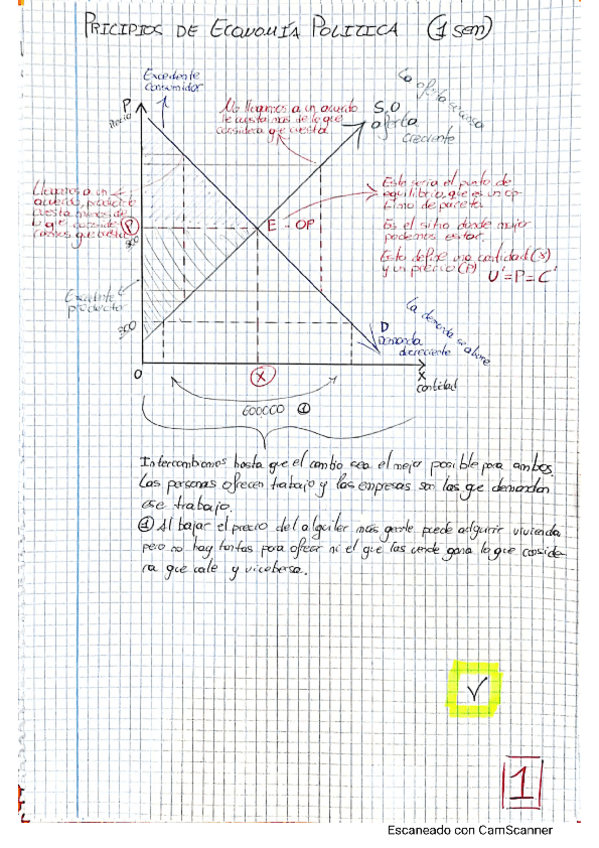 PRICIPIOS DE ECONOMÍA POLITICA (1 sem)
Excedente
consumidor
P
Precio
No llegamos a un acuerdo
le cuesta mas de lo que
considera que cuesta
S,O
oferta
creciente
La oferta
Este seria el punto de
equilibrio, que es un óp
timo de pareto.
Es el sitio donde mejor
podemos estar.
Esto define una cantidad (x)
y un precio (P)
U'=P=C'
Llegamos a un
acuerdo,
cuesta menos de
lo que
P
E - OP
Excedente
productor
300
La demanda
D
Demanda
decreciente
O
X
X
cantidad
600000 ①
Intercambiamos hasta que el cambio sea el mejor posible para ambos.
Las personas ofrecen trabajo y las empresas son las que demandan
ese trabajo.
① Al bajar el precio del alquiler más gente puede adquirir vivienda
pero no hay tantas para ofrecer ni el que las vende gana lo que conside-
ra que vale y viceversa.
1
Escaneado con CamScanner